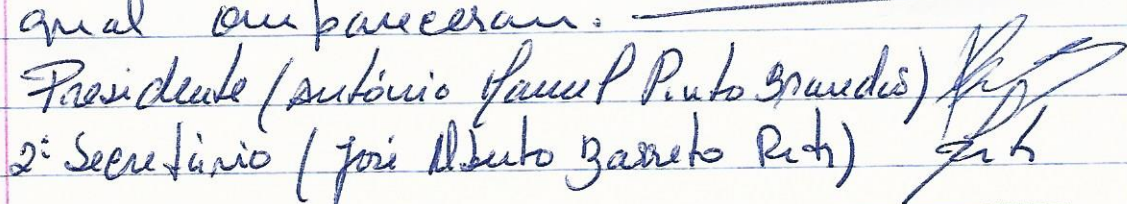 qual compareceram.
Presidente (António Manuel Pinto Brandão)
2º Secretário (José Alberto Barreto